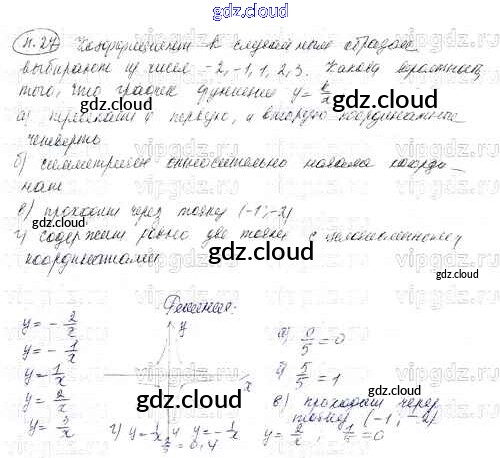 gdz.cloud
н.27 Коэффициент k случайным образом
выбирают из чисел -2, -1, 1, 2, 3. Какова вероятность
того, что график функции y = k/x
gdz.cloud
а) пересекает и первую, и вторую координатные
четверть
б) симметричен относительно начала коорди-
нат
в) проходит через точку (-1; -2)
г) содержит ровно две точки с целочисленными
gdz.cloud
координатами
Решение:
y = - 2/x
y = - 1/x
y = 1/x
y = 2/x
y = 3/x
y
x
gdz.cloud
а) 0/5 = 0
б) 5/5 = 1
в) проходит через
точку (-1; -2)
y = 2/x ; 1/5 = 0
г) y = 1/x и y = - 1/x
2/5 = 0,4
gdz.cloud